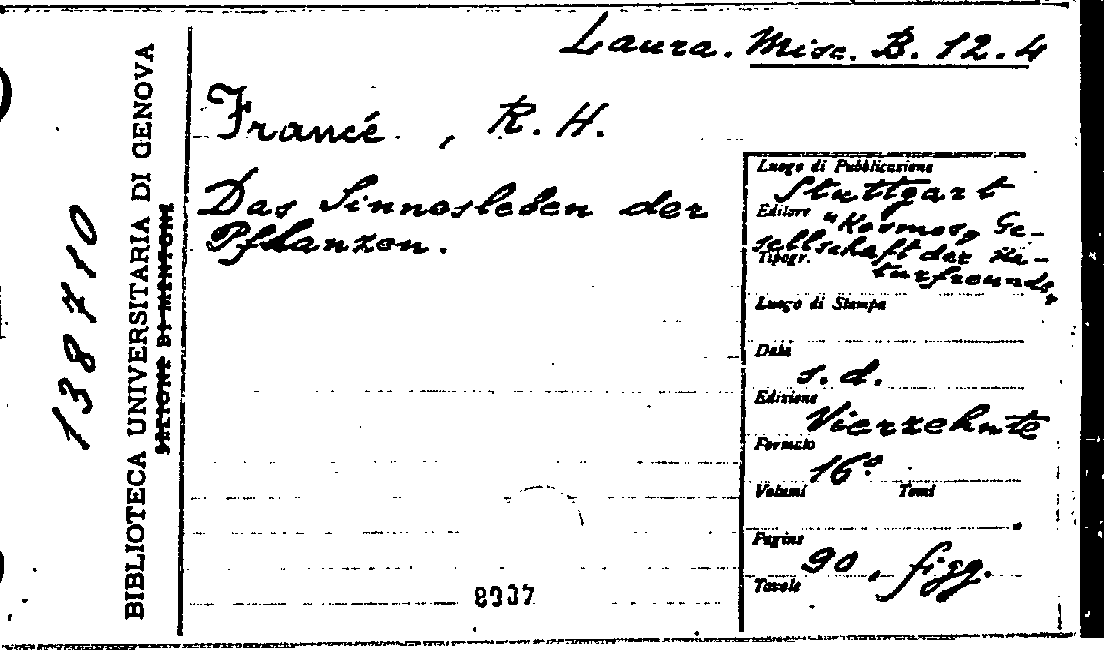 Laura. Misc. B. 12. 4
Francé, R. H.
Das Sinnesleben der
Pflanzen.
Luogo di Pubblicazione
Stuttgart
Editore "Kosmos„ Ge-
sellschaft der Na-
Tipogr. turfreunde,
Luogo di Stampa
Data
s. d.
Edizione
Vierzehnte
Formato
16°
Volumi Tomi
Pagine
90, figg.
Tavole
8937
138710
BIBLIOTECA UNIVERSITARIA DI GENOVA